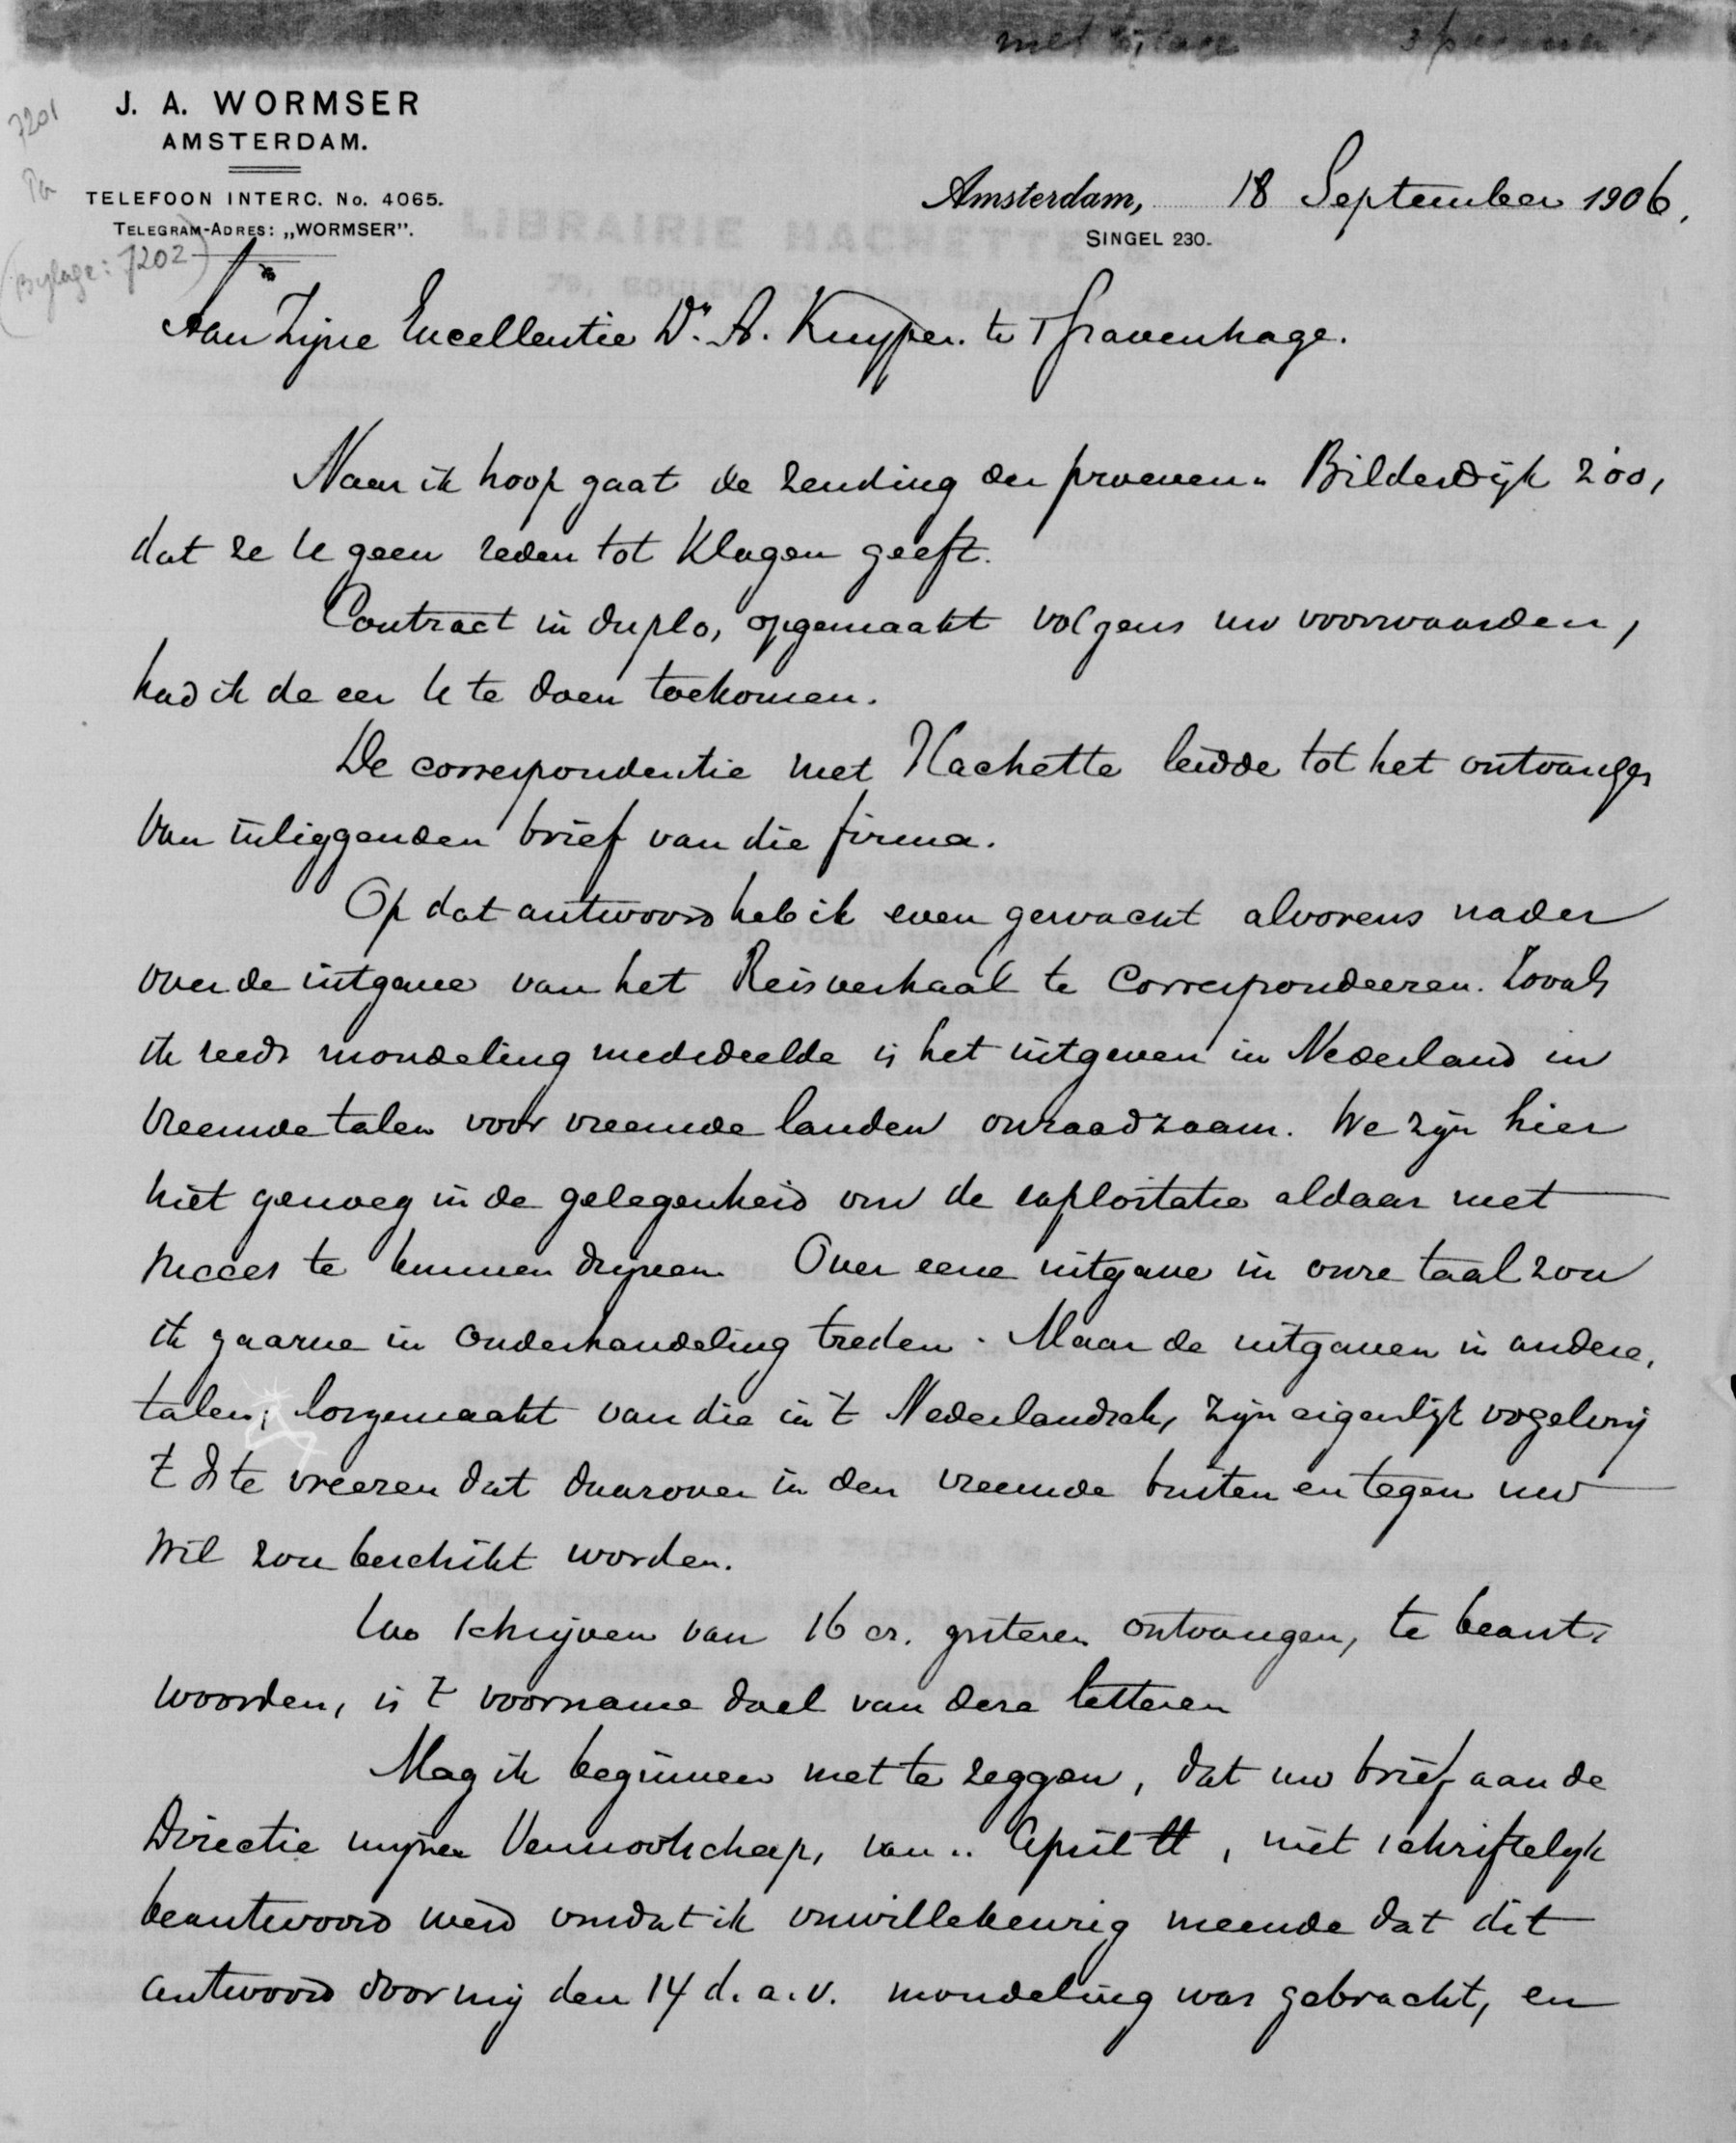 met bijlage
7201
J. A. WORMSER
AMSTERDAM.
TELEFOON INTERC. No. 4065.
TELEGRAM-ADRES: „WORMSER”.
(Bijlage: 7202)
Amsterdam, 18 September 1906.
SINGEL 230.
LIBRAIRIE HACHETTE
79, BOULEVARD SAINT GERMAIN
Aan Zijne Excellentie Dr. A. Kuyper. te 's Gravenhage.
Naar ik hoop gaat de zending der proeven „ Bilderdijk zóó,
dat ze U geen reden tot klagen geeft.
Contract in duplo, opgemaakt volgens uw voorwaarden,
had ik de eer U te doen toekomen.
De correspondentie met Hachette leidde tot het ontvangen
van inliggenden brief van die firma.
Op dat antwoord heb ik even gewacht alvorens nader
over de uitgave van het Reisverhaal te correspondeeren. Zooals
ik reeds mondeling mededeelde is het uitgeven in Nederland in
vreemde talen voor vreemde landen onraadzaam. We zijn hier
niet genoeg in de gelegenheid om de exploitatie aldaar met
succes te kunnen drijven. Over eene uitgave in onze taal zou
ik gaarne in onderhandeling treden. Maar de uitgaven in andere
talen, losgemaakt van die in 't Nederlandsch, zijn eigenlijk vogelvrij
't Is te vreezen dat daarover in den vreemde buiten en tegen uw
wil zou beschikt worden.
Uw schrijven van 16 cr. gisteren ontvangen, te beant-
woorden, is 't voorname doel van deze letteren
Mag ik beginnen met te zeggen, dat uw brief aan de
Directie mijner Vennootschap, van .. April ll, niet schriftelijk
beantwoord werd omdat ik onwillekeurig meende dat dit
antwoord door mij den 14 d. a. v. mondeling was gebracht, en